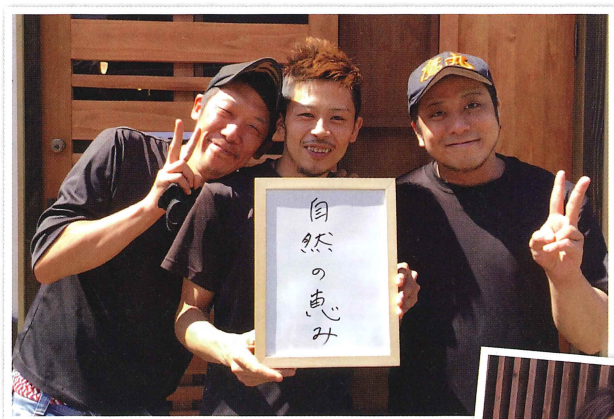 自然の恵み